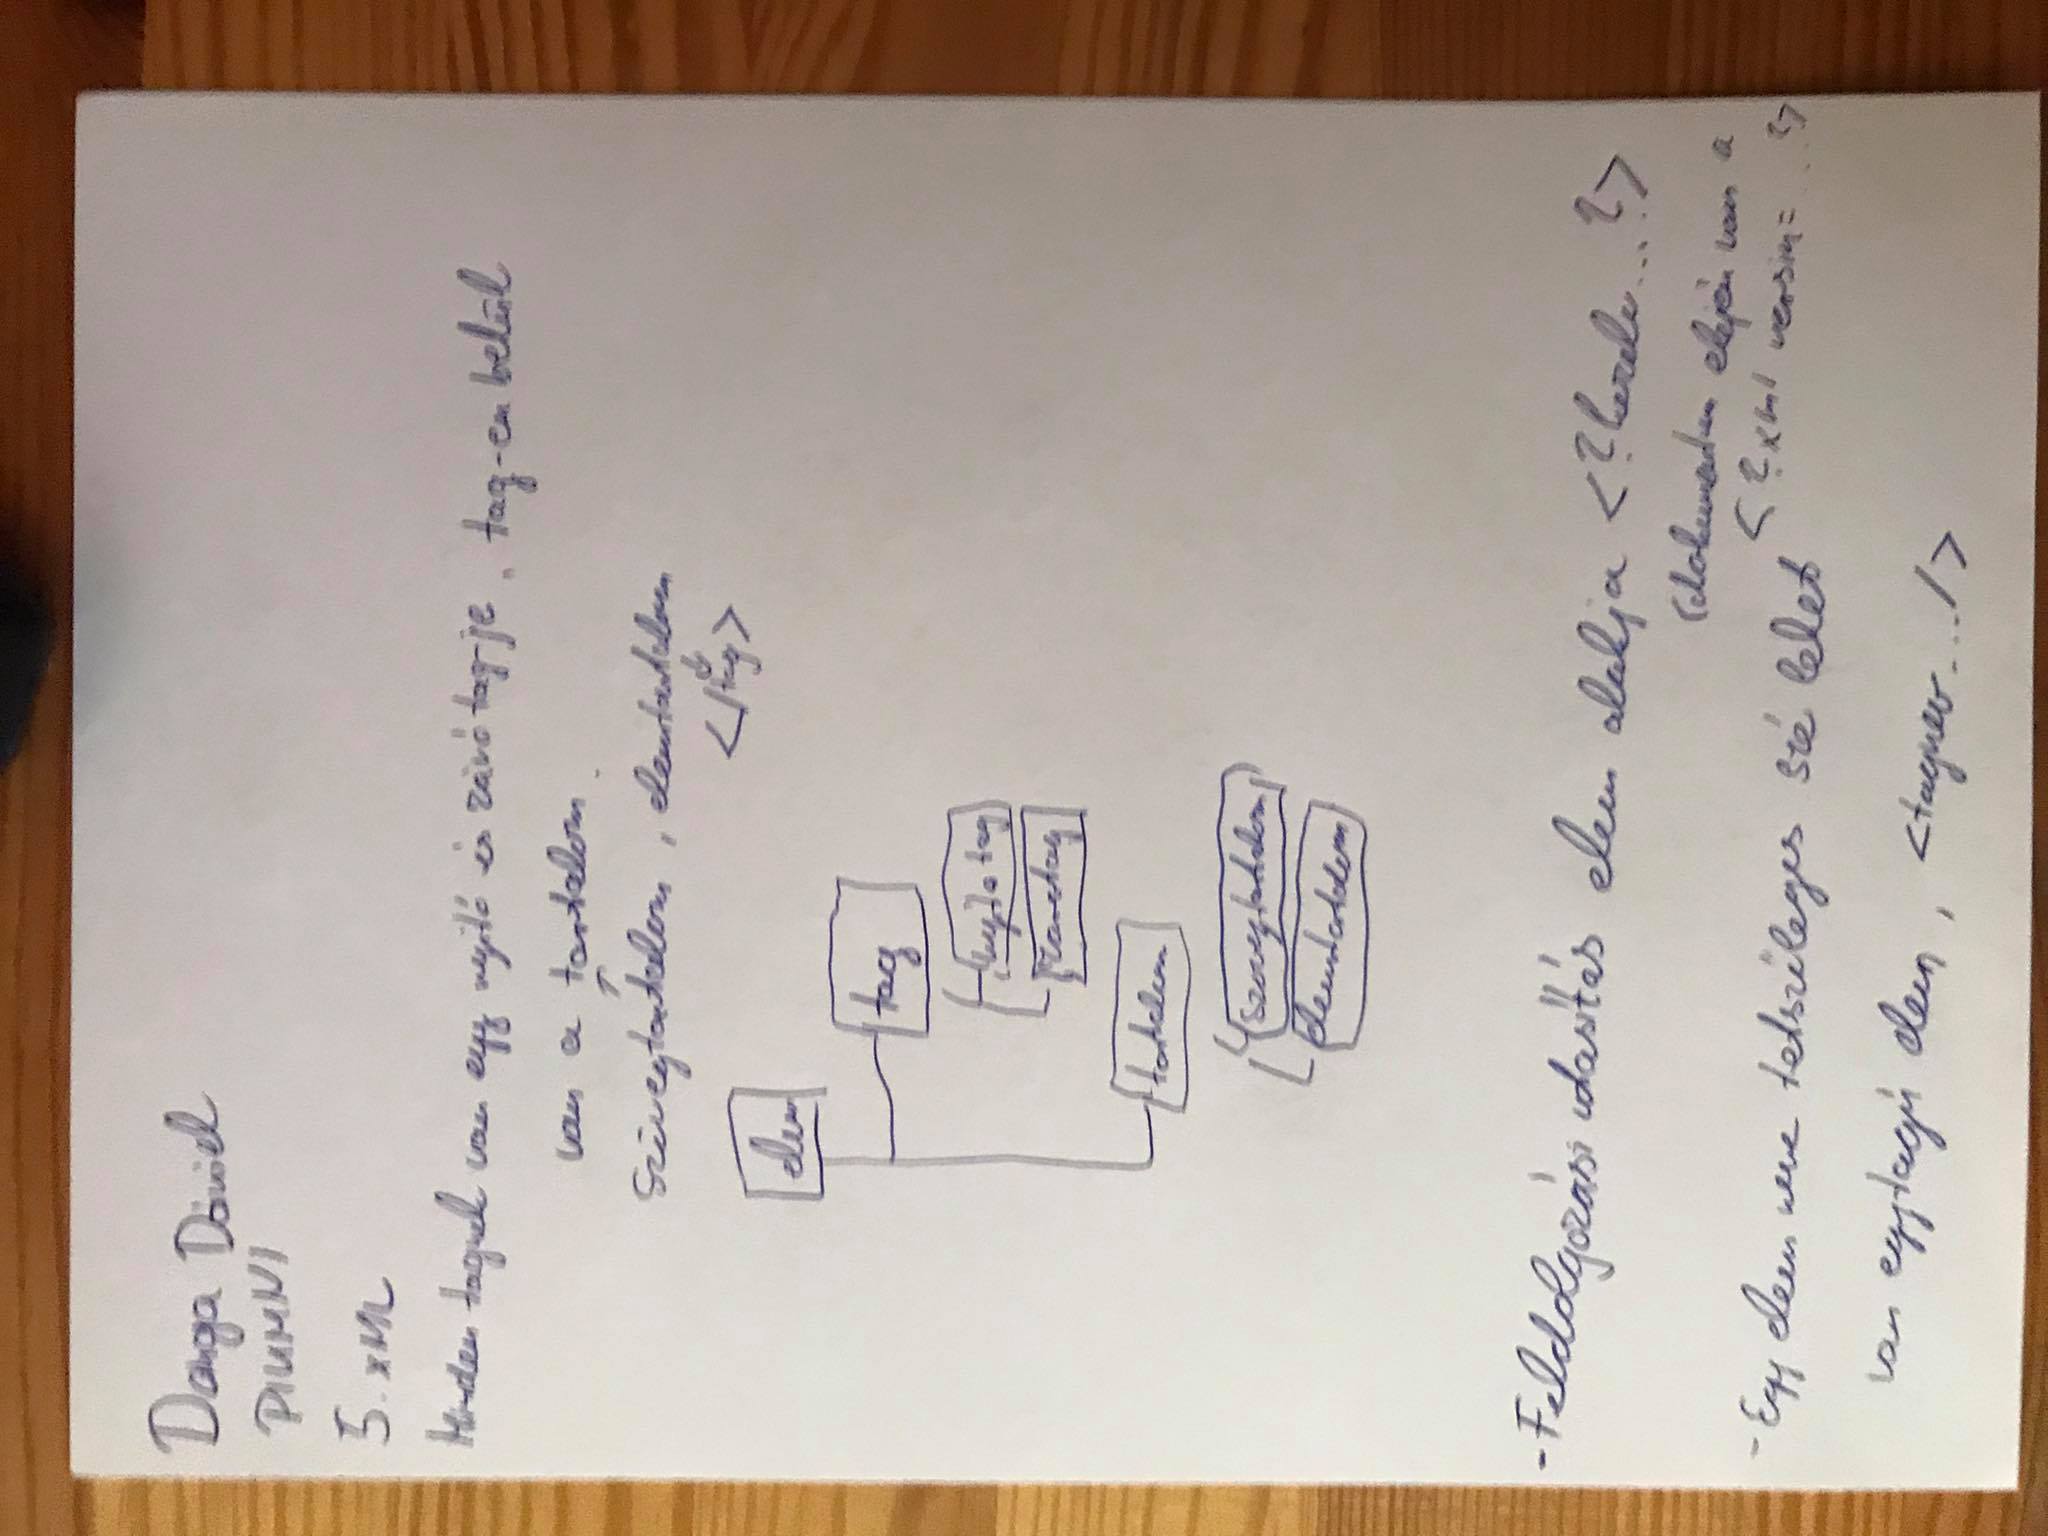 Darga Dániel
PIUMNI
5. XML
Minden tagnek van egy nyitó és záró tag-je, tag-en belül
van a tartalom.
Szövegtartalom, elemtartalom
</tag>
elem
tag
nyitó tag
zárótag
tartalom
szövegtartalom
elemtartalom
- Feldolgozási utasítás elem alakja <? ... ?>
(dokumentum elején van a
<?xml version= ... ?>
- Egy elem neve tetszőleges szó lehet
van egytagú elem, <tagnev.../>